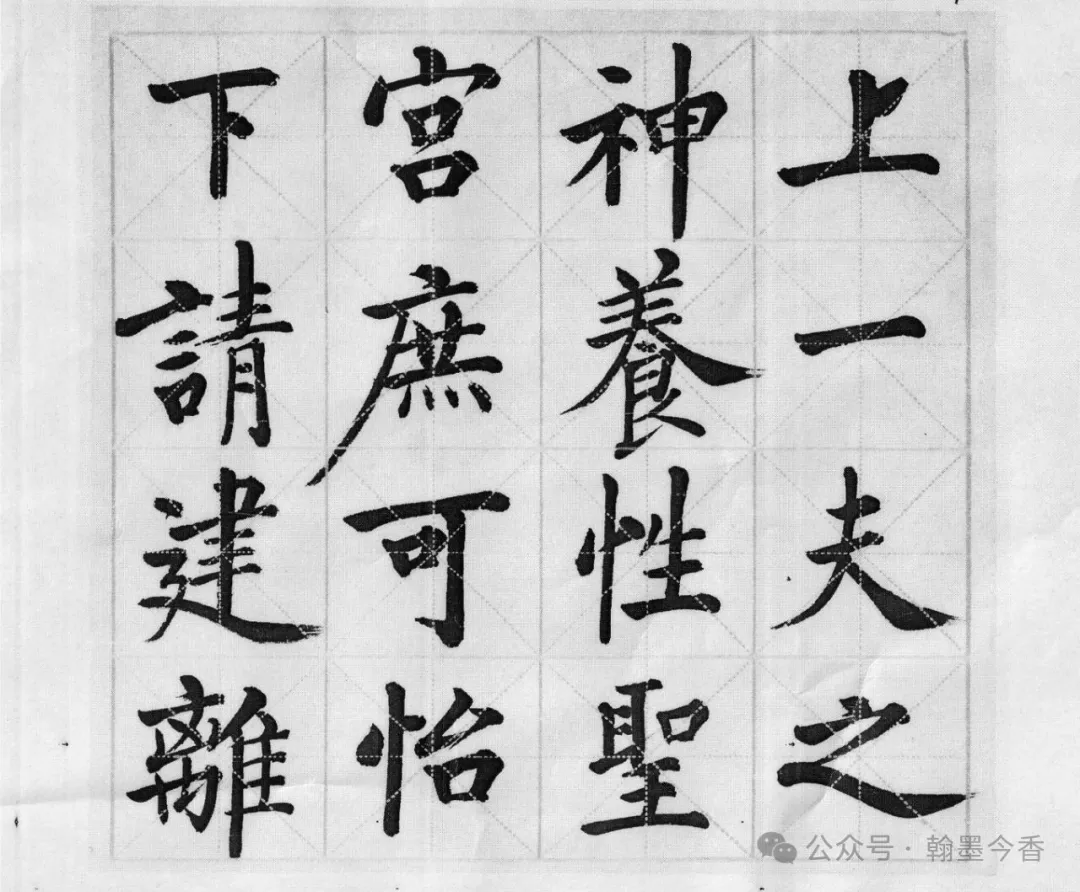 上一夫之
神養性聖
宮庶可怡
下請建離
公众号·翰墨今香